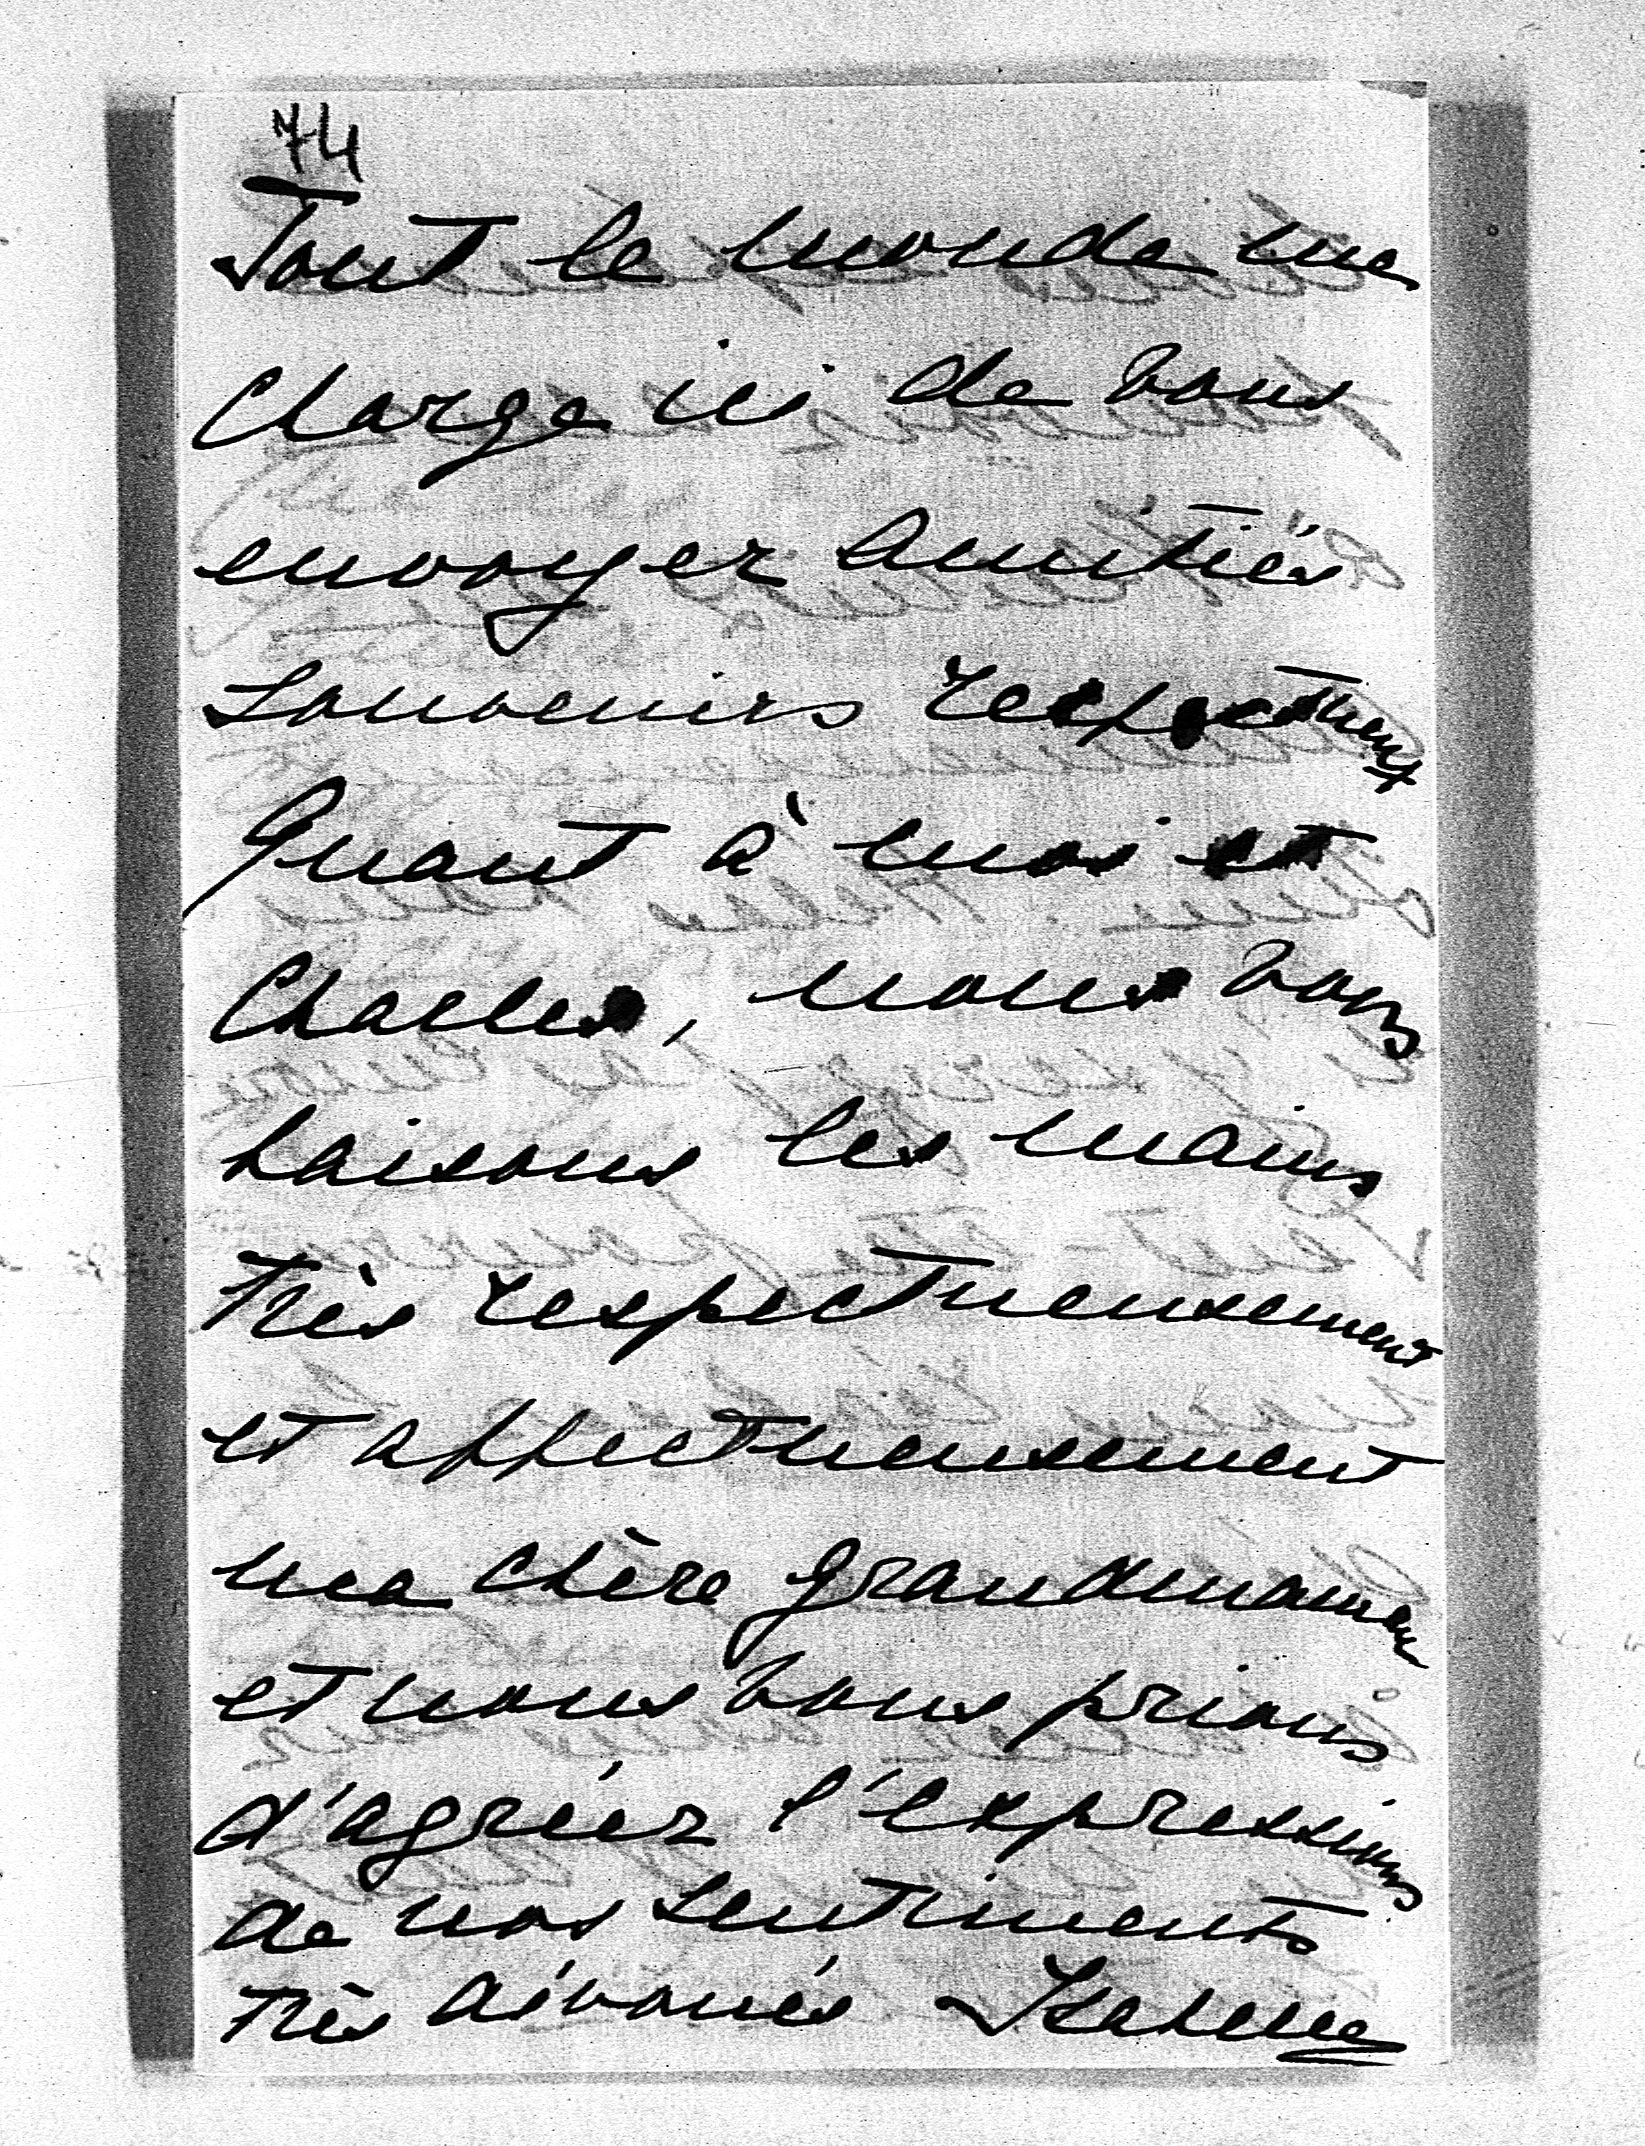 74
Tout le monde me
charge ici de vous
envoyer amitiés
souvenirs respectueux
Quant à moi et
Charles, nous vous
baisons les mains
très respectueusement
et affectueusement
ma chère Grandmaman
et nous vous prions
d'agréer l'expressions
de nos sentiments
très dévoués Isabelle